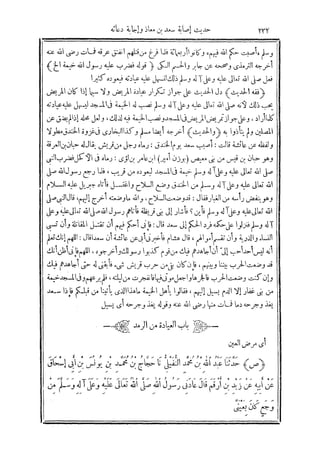 ٢٢٢ حديث إصابة سعد بن معاذ وإجابة دعائه
وسلم، أصبت حكم الله فيهم، وكانوا أربعمائة فلما فرغ من قتلهم انفتق عرقه فمات رضى الله عنه
أخرجه الترمذى وصححه عن جابر وأخرج (قوله فضرب عليه رسول الله خيمة الخ)
فعل صلى الله تعالى عليه وعلى آله وسلم ذلك ليسهل عليه عيادته فيعوده كثيرا
(فقه الحديث) دل الحديث على جواز تكرار عيادة المريض ولا سيما إذا كان المريض
يحب ذلك لأنه صلى الله تعالى عليه وعلى آله وسلم نصب له الخيمة فى المسجد ليسهل عليه عيادته
كلما أراد، وعلى جواز تمريض المريض فى المسجد ونصب الخيمة فيه لذلك، ولعل محله إذا لم يضيق عن
المصلين ولم يتأذوا به (والحديث) أخرجه أيضا مسلم وكذا البخارى فى غزوة الخندق مطولا
ولفظه عن عائشة قالت: أصيب سعد يوم الخندق: رماه رجل من قريش يقال له حبان بن العرقة
وهو حبان بن قيس من بنى معيص (بوزن أمير) ابن عامر بن لؤى: رماه فى الأكحل فضرب النبى
صلى الله تعالى عليه وعلى آله وسلم خيمة فى المسجد ليعوده من قريب، فلما رجع رسول الله صلى
الله تعالى عليه وعلى آله وسلم من الخندق وضع السلاح واغتسل فأتاه جبريل عليه السلام
وهو ينفض رأسه من الغبار فقال: قد وضعت السلاح، والله ما وضعته أخرج إليهم، قال النبى صلى
الله تعالى عليه وعلى آله وسلم فأين؟ فأشار إلى بنى قريظة فأتاهم رسول الله صلى الله تعالى عليه وعلى
آله وسلم فنزلوا على حكمه فرد الحكم إلى سعد قال: فإنى أحكم فيهم أن تقتل المقاتلة وأن تسبى
النساء والذرية وأن تقسم أموالهم، قال هشام فأخبرنى أبى عن عائشة أن سعدا قال: اللهم إنك تعلم
أنه ليس أحد أحب إلىّ أن أجاهدهم فيك من قوم كذبوا رسولك وأخرجوه، اللهم فإنى أظن أنك
قد وضعت الحرب بيننا وبينهم، فإن كان بقى من حرب قريش شىء فأبقنى له حتى أجاهدهم فيك
وإن كنت وضعت الحرب فافجرها واجعل موتى فيها فانفجرت من ليلته، فلم يرعهم وفى المسجد خيمة
من بنى غفار إلا الدم يسيل إليهم، فقالوا يا أهل الخيمة ما هذا الذى يأتينا من قبلكم فإذا سعد
يغذ وجرحه دما فمات منها رضى الله عنه وقوله يغذ وجرحه أى يسيل
باب العيادة من الرمد
أى مرض العين
(ص) حَدَّثَنَا عَبْدُ اللهِ بْنُ مُحَمَّدٍ النُّفَيْلِىُّ نَا حَجَّاجُ بْنُ مُحَمَّدٍ عَنْ يُونُسَ بْنِ أَبِى إِسْحَاقَ
عَنْ أَبِيهِ عَنْ زَيْدِ بْنِ أَرْقَمَ قَالَ عَادَنِى رَسُولُ اللهِ صَلَّى اللهُ تَعَالَى عَلَيْهِ وَعَلَى آلِهِ وَسَلَّمَ مِنْ
وَجَعٍ كَانَ بِعَيْنَىَّ